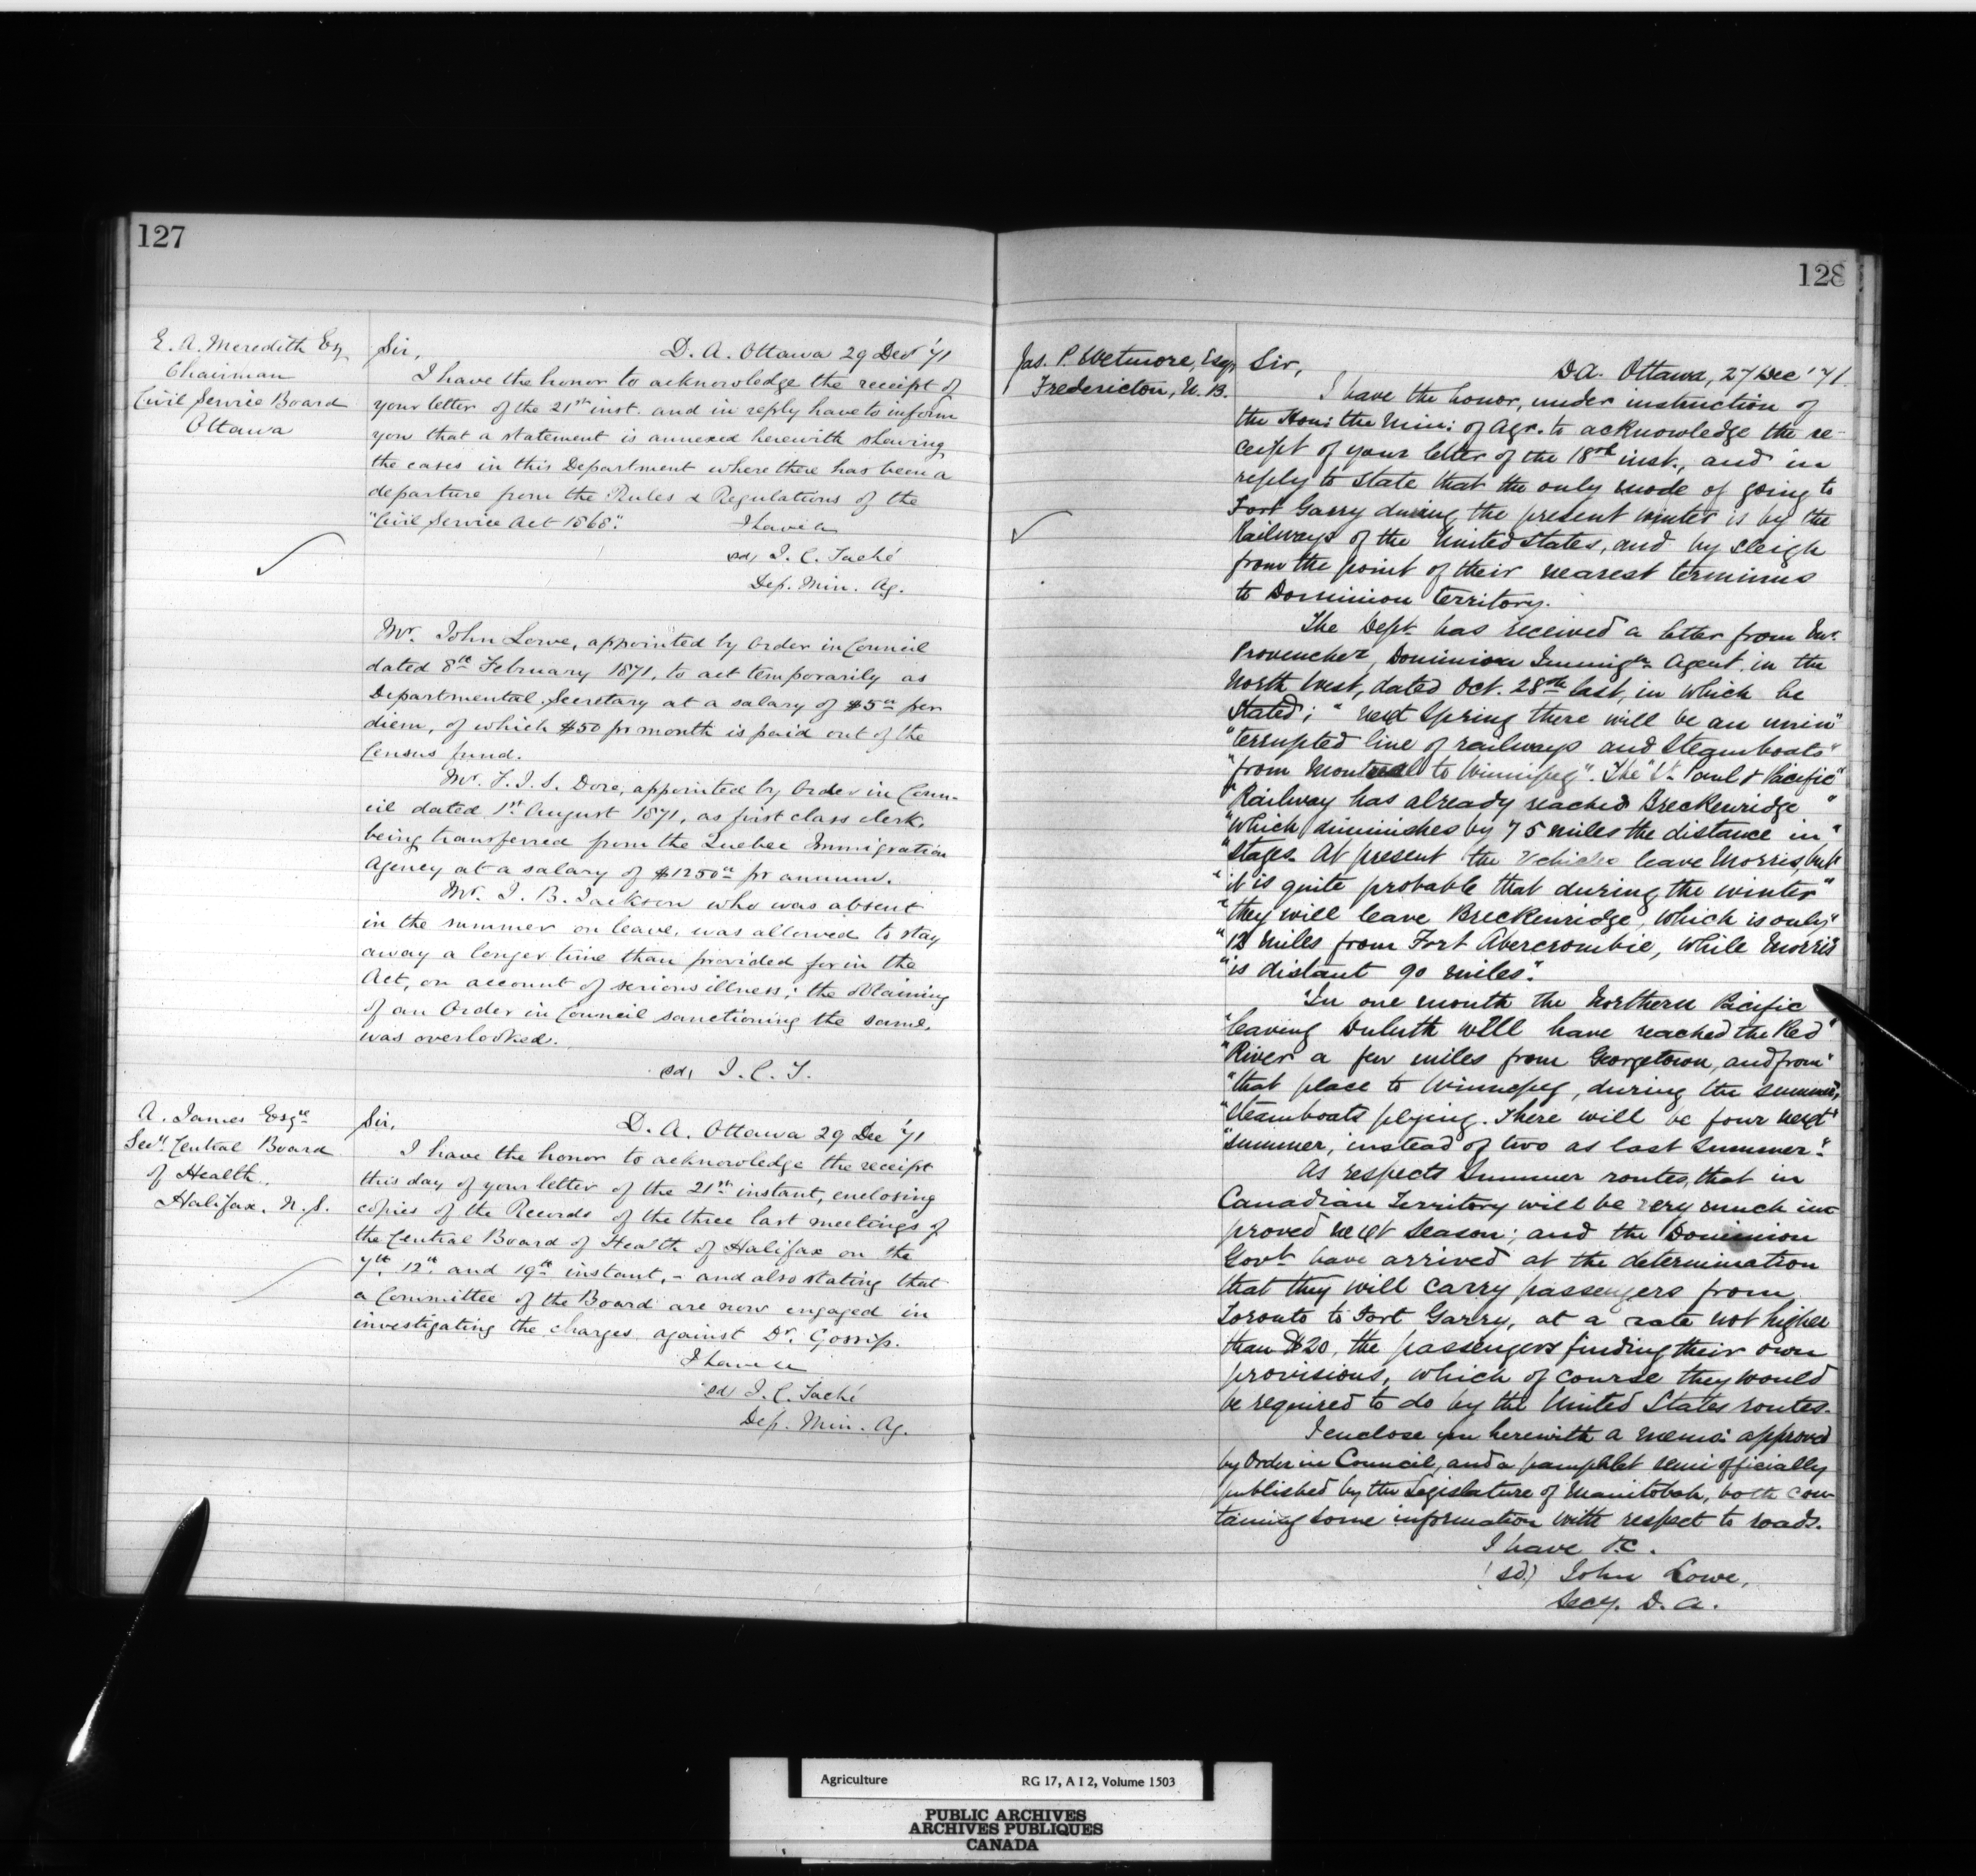 127
E. A. Meredith Esq
Chairman
Civil Service Board
Ottawa
Sir,
D. A. Ottawa 29 Dec '71
I have the honor to acknowledge the receipt of
your letter of the 21st inst. and in reply have to inform
you that a statement is annexed herewith shewing
the cases in this Department where there has been a
departure from the Rules & Regulations of the
"Civil Service Act 1868".
I have &c
sd, J. C. Taché
Dep. Min. Ag.
Mr. John Lowe, appointed by Order in Council
dated 8th February 1871, to act temporarily as
Departmental Secretary at a salary of $5 00 per
diem, of which $50 pr month is paid out of the
Census fund.
Mr. F. I. S. Dore, appointed by Order in Coun-
cil dated 1st August 1871, as first class clerk,
being transferred from the Quebec Immigration
Agency at a salary of $1250 00 pr annum.
Mr. J. B. Jackson who was absent
in the summer on leave, was allowed to stay
away a longer time than provided for in the
Act, on account of serious illness; the obtaining
of an Order in Council sanctioning the same,
was overlooked.
sd, J. C. T.
A. James Esqre
Secy Central Board
of Health,
Halifax, N. S.
Sir,
D. A. Ottawa 29 Dec '71
I have the honor to acknowledge the receipt
this day of your letter of the 21st instant, enclosing
copies of the Records of the three last meetings of
the Central Board of Health of Halifax on the
7th, 12th, and 19th instant, - and also stating that
a Committee of the Board are now engaged in
investigating the charges against Dr. Gossip.
I have &c
sd, J. C. Taché
Dep. Min. Ag.
128
Jas. P. Wetmore, Esqr
Fredericton, N. B.
Sir,
DA. Ottawa, 27 Dec '71.
I have the honor, under instruction of
the Hon: the Min: of Agr. to acknowledge the re-
ceipt of your letter of the 18th inst., and in
reply to state that the only mode of going to
Fort Garry during the present winter is by the
Railways of the United States, and by sleigh
from the point of their nearest terminus
to Dominion territory.
The Dept. has received a letter from Mr.
Provencher, Dominion Immigtn Agent in the
North West, dated Oct. 28th last, in which he
stated; "next Spring there will be an unin"
"terrupted line of railways and Steamboats"
"from Montreal to Winnipeg". The "St. Paul & Pacific"
"Railway has already reached Breckenridge"
"which diminishes by 75 miles the distance in"
"stages. At present the vehicles leave Morris, but"
"it is quite probable that during the winter"
"they will leave Breckenridge, which is only"
"12 miles from Fort Abercrombie, while Morris
"is distant 90 miles".
"In one month the Northern Pacific
"leaving Duluth will have reached the Red"
"River a few miles from Georgetown, and from"
"that place to Winnepeg, during the summer,
"steamboats plying. There will be four next"
"summer, instead of two as last Summer."
As respects Summer routes, that in
Canadian Territory will be very much im-
proved next Season; and the Dominion
Govt. have arrived at the determination
that they will carry passengers from
Toronto to Fort Garry, at a rate not higher
than $20, the passengers finding their own
provisions, which of course they would
be required to do by the United States routes.
I enclose you herewith a memo: approved
by Order in Council, and a pamphlet semi officially
published by the Legislature of Manitobah, both con-
taining some information with respect to roads.
I have &c.
(sd) John Lowe,
Secy. D. A.
Agriculture RG 17, A I 2, Volume 1503
PUBLIC ARCHIVES
ARCHIVES PUBLIQUES
CANADA